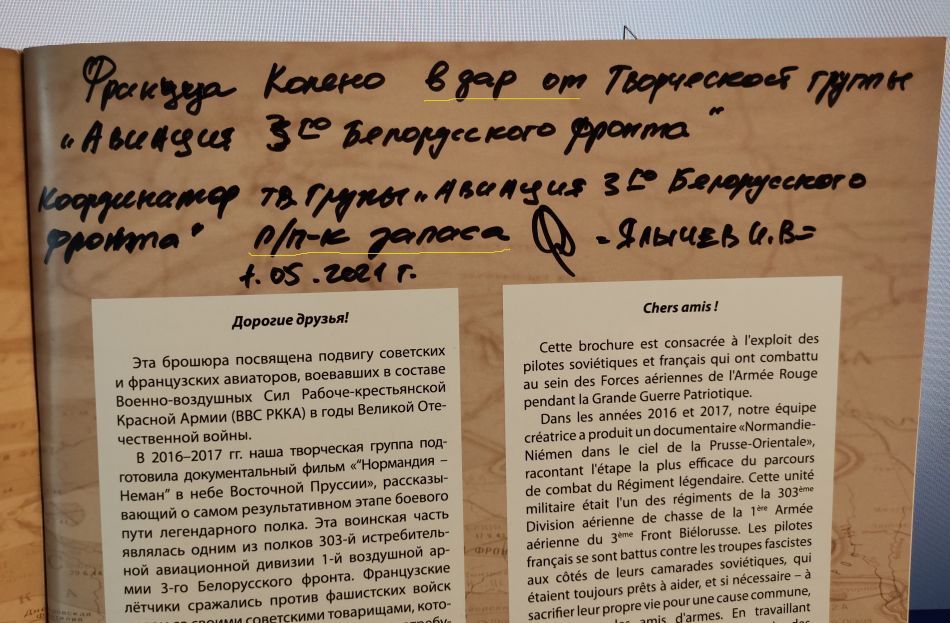 Француа Колено в дар от Творческой группы
„Авиация 3го Белорусского фронта"
Координатор тв. Группы „Авиация 3го Белорусского
фронта" п/п-к запаса =Ялычев И.В=
1.05.2021 г.
Дорогие друзья!
Эта брошюра посвящена подвигу советских
и французских авиаторов, воевавших в составе
Военно-воздушных Сил Рабоче-крестьянской
Красной Армии (ВВС РККА) в годы Великой Оте-
чественной войны.
В 2016–2017 гг. наша творческая группа под-
готовила документальный фильм «"Нормандия –
Неман" в небе Восточной Пруссии», рассказы-
вающий о самом результативном этапе боевого
пути легендарного полка. Эта воинская часть
являлась одним из полков 303-й истребитель-
ной авиационной дивизии 1-й воздушной ар-
мии 3-го Белорусского фронта. Французские
лётчики сражались против фашистских войск
со своими советскими товарищами, кото-
Chers amis !
Cette brochure est consacrée à l'exploit des
pilotes soviétiques et français qui ont combattu
au sein des Forces aériennes de l'Armée Rouge
pendant la Grande Guerre Patriotique.
Dans les années 2016 et 2017, notre équipe
créatrice a produit un documentaire «Normandie-
Niémen dans le ciel de la Prusse-Orientale»,
racontant l'étape la plus efficace du parcours
de combat du Régiment légendaire. Cette unité
militaire était l'un des régiments de la 303ème
Division aérienne de chasse de la 1ère Armée
aérienne du 3ème Front Biélorusse. Les pilotes
français se sont battus contre les troupes fascistes
aux côtés de leurs camarades soviétiques, qui
étaient toujours prêts à aider, et si nécessaire – à
sacrifier leur propre vie pour une cause commune,
amis d'armes. En travaillant